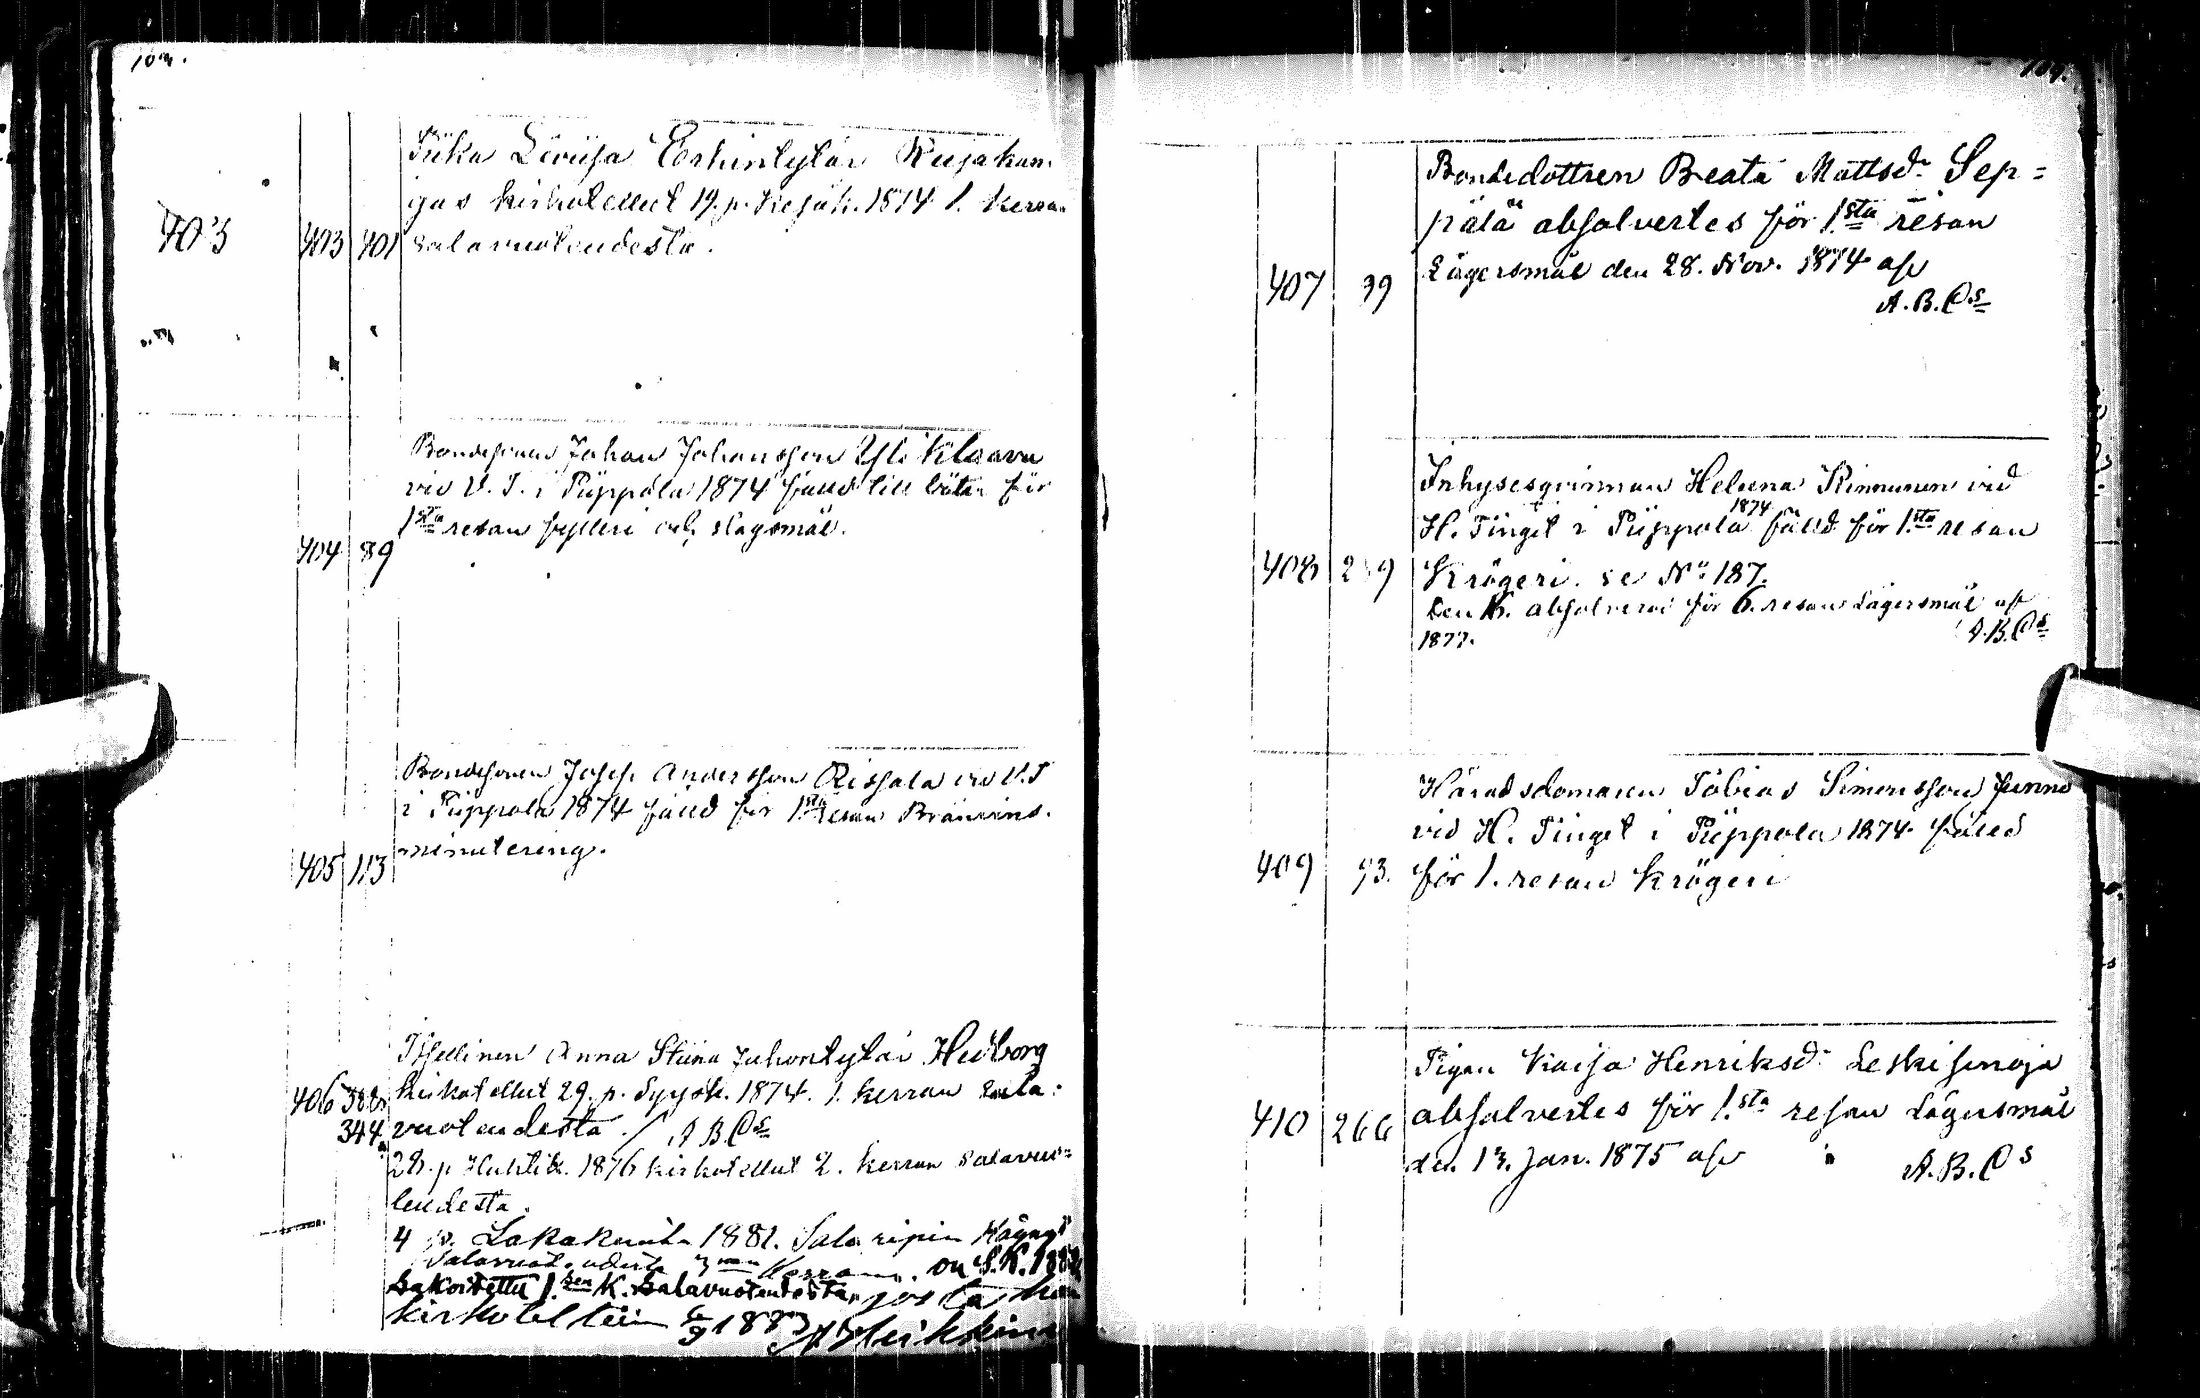 403
403 401
Piika Lovisa Erkintytär Ruijakan
gas kirkotellut 19. p. Kesäk. 1874 1. kerran
salavuoteudesta.
404 89
Bondesonen Johan Johansson Yli Klaavu
vid V. T. i Piippola 1874 fälld till böter för
1sta resan fylleri och slagsmål.
405 113
Bondesonen Josef Andersson Rissala vid V. T
i Piippola 1874 fälld för 1sta resan Brännvins-
minutering.
406 388
344
Itsellinen Anna Stiina Juhontytär Hedborg
kirkotellut 29. p. Syysk. 1874. 1. kerran sala-
vuoteudesta. / A B Cs
28. p Huhtik. 1876 kirkotellut 2. kerran salavuo-
teudesta.
4 p. Lokakuuta 1881. Sala ripin Käynyt
Salavuoteudesta 3men Kerran. on S. K. 188
Sakoitettu 1.sen K. Salavuoteudesta, josta han
kirkotettiin 1883
109.
407 39
Bondedottren Beata Mattsdr Sep=
pälä absolvertes för 1sta resan
Lägersmål den 28. Nov. 1874 af
A. B. Cs
408
Inhysesqvinnan Helena Kinnunen vid
H. Tinget i Piippola 1874 fälld för 1sta resan
Krögeri. se No 187.
Den absolverad för 6. resan Lägersmål af
1877. A. B. Cs
409 93.
Häradsdomaren Tobias Simonsson Junno
vid H. Tinget i Piippola 1874 fälld
för 1. resan Krögeri
410 266
Pigan Kaisa Henriksdr Leskisenoja
absolvertes för 1.sta resan Lägersmål
den 13. Jan. 1875 af
A. B. Cs